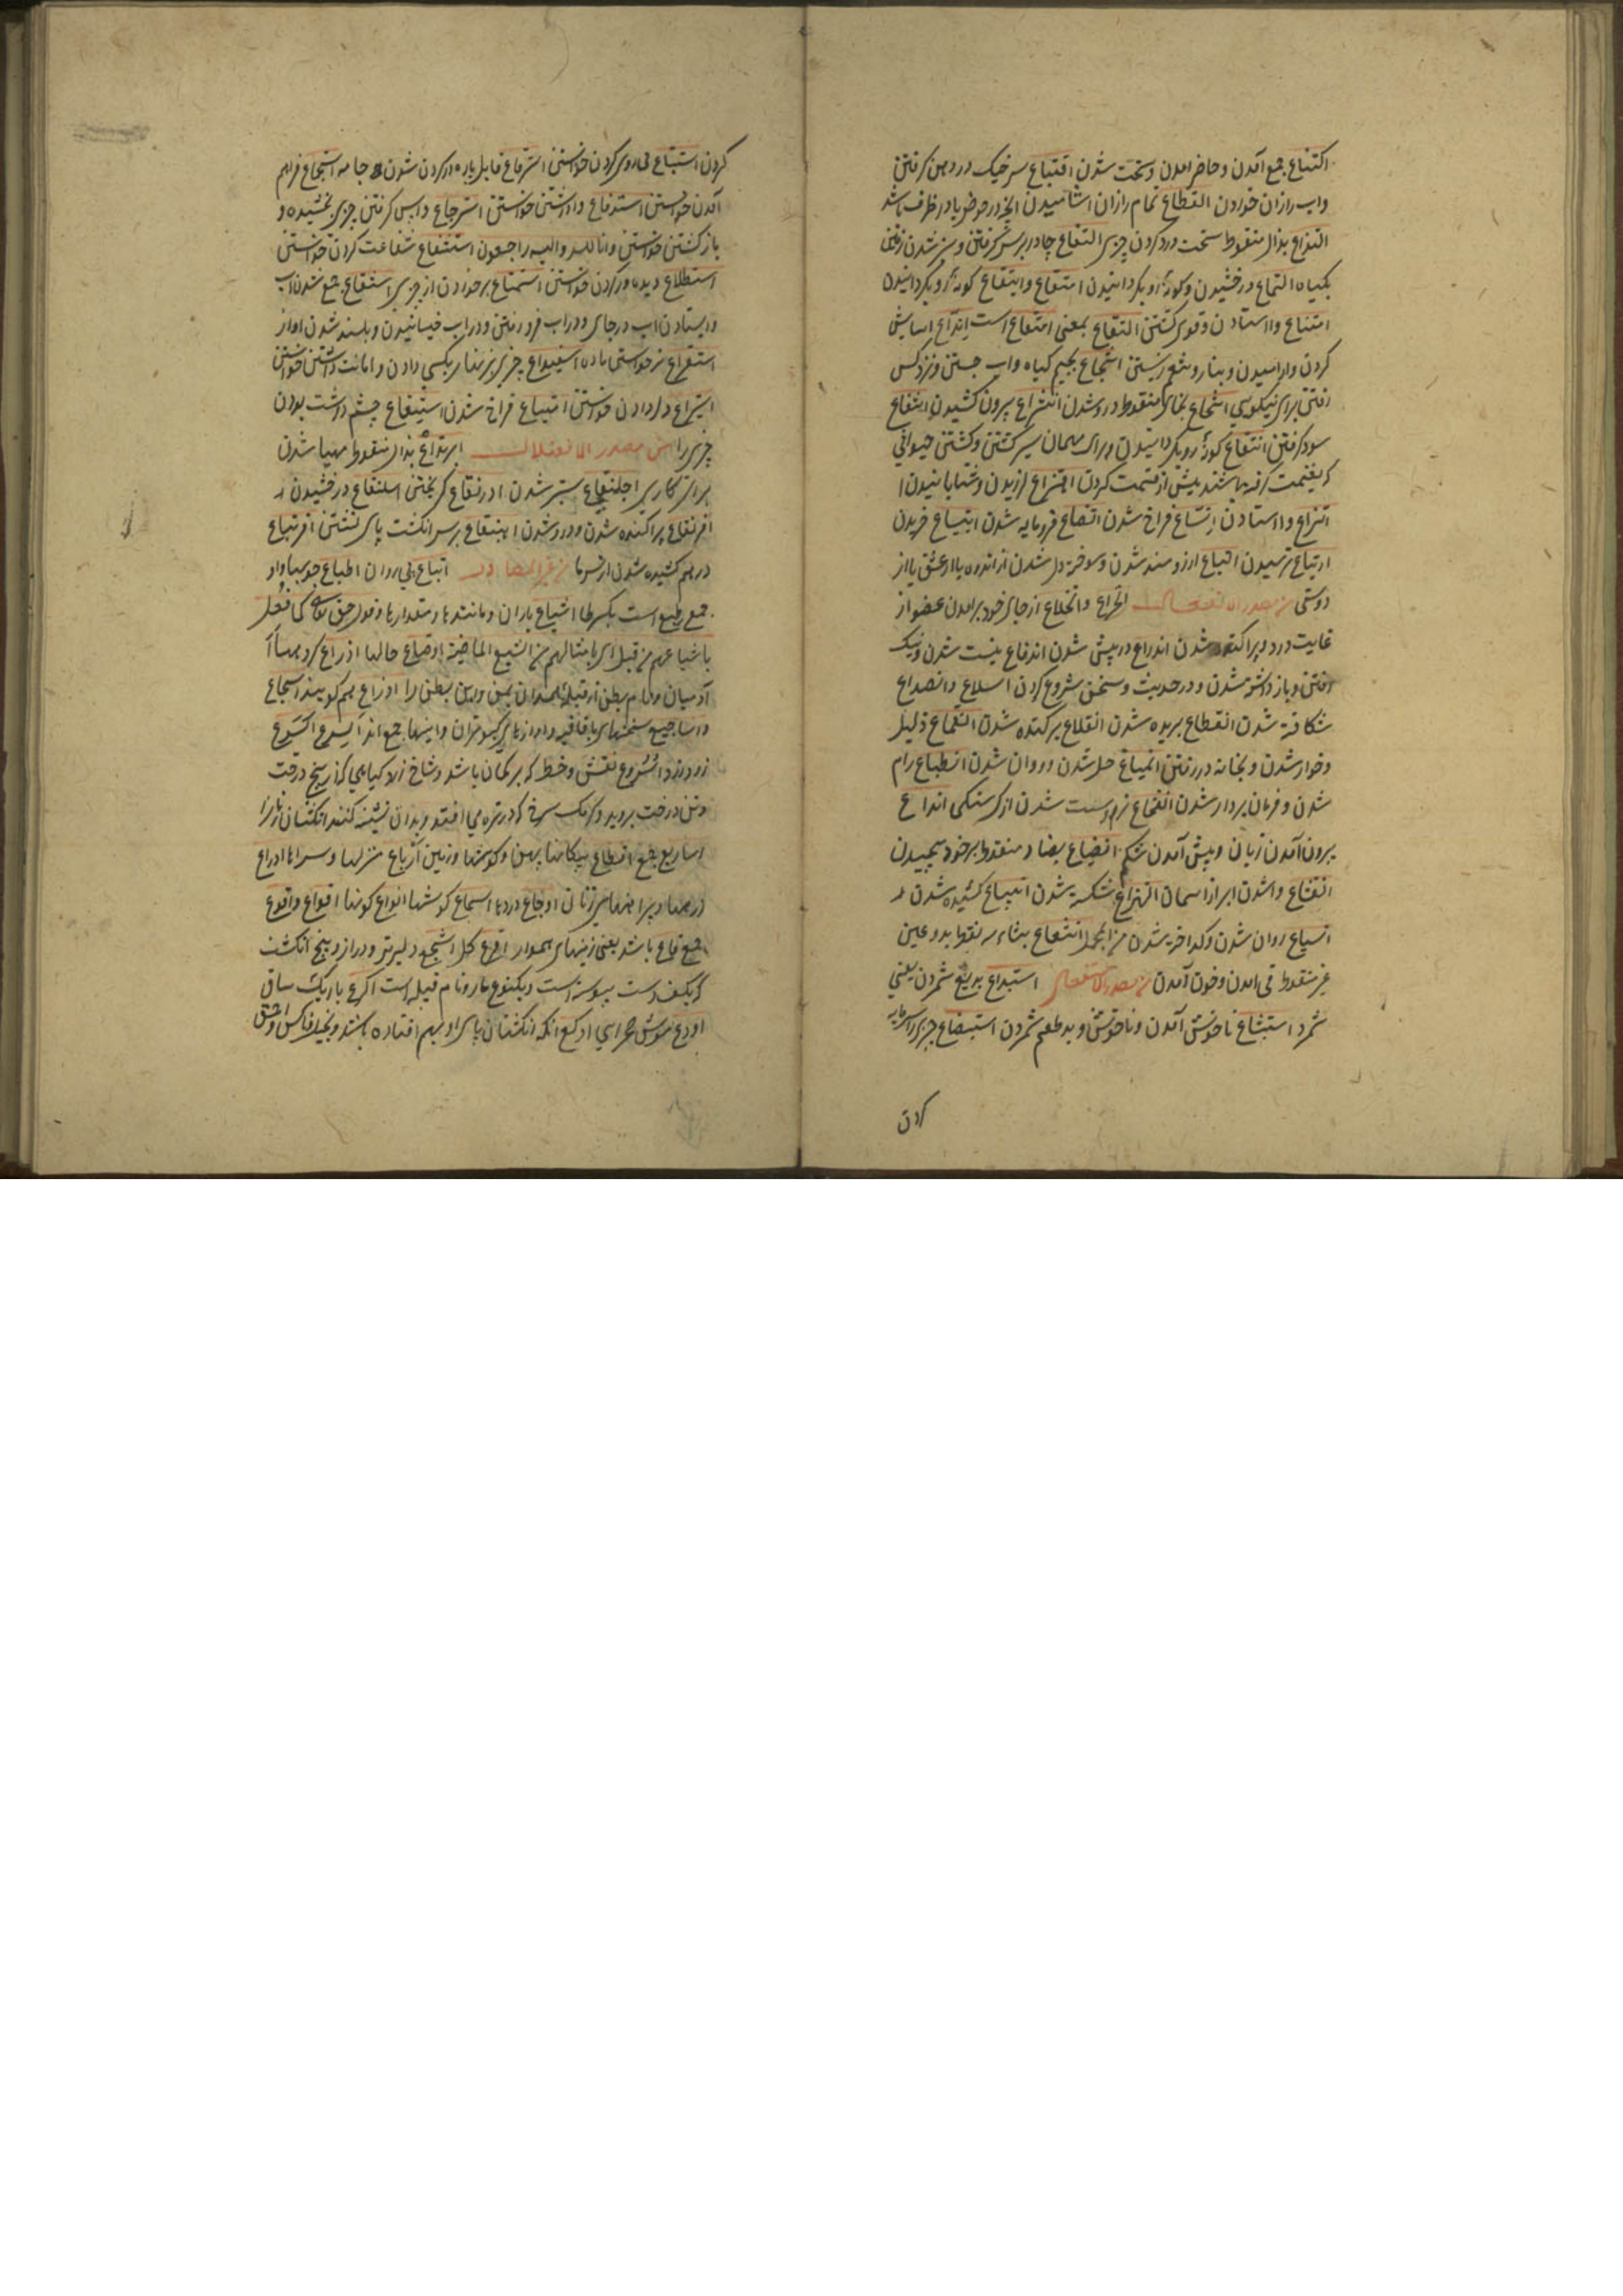 اکتناع جمع آمدن و حاضر امدن و سخت شدن اقتباع سر خیک در دهن کرفتن
واب ازان خوردن اقتطاع تمام ازان اشامیدن انچه در حوض یا در ظرف باشد
التذاع بذال منقوط سخت درد کردن چیزی التفاع چادر بر سر کرفتن و سبز شدن زمین
بکیاه التماع درخشیدن و کونۀ رو بکردانیدن امتقاع وابتقاع کونۀ رو بکردانیدن
امتناع وااستادن و قوی کشتن التقاع بمعنی امتقاع است ایتداع اسایش
کردن و ارامیدن و بناز و تنعم زیستن انتجاع بجیم کیاه واب جستن و نزد کس
رفتن برای نیکویی انتخاع بخای منقوط دور شدن انتزاع بیرون کشیدن انتفاع
سود کرفتن انتقاع کونۀ رو بکردانیدن و برای مهمان سر کشتن و کشتن حیوانی
که بغنیمت کرفته باشند پیش از قسمت کردن اهتزاع لرزیدن و شتابانیدن
اتزاع وااستادن اتساع فراخ شدن اتضاع فرومایه شدن ابتیاع خریدن
ارتیاع ترسیدن التیاع ارزومند شدن و سوخته دل شدن از اندوه یا از عشق یا از
دوستی من مصدر الانفعال انخراع وانخلاع از جای خود برامدن عضو از
غایت درد و پراکنده شدن اندراع در پیش شدن اندفاع نیست شدن و نیک
رفتن و باز داشته شدن و در حدیث و سخن شروع کردن انسلاع وانصداع
شکافته شدن انقطاع بریده شدن انقلاع برکنده شدن انقماع ذلیل
و خوار شدن و بخانه در رفتن انمیاع حل شدن و روان شدن انطباع رام
شدن و فرمان بردار شدن انفخاع نرم و سست شدن از کرسنکی اندلاع
بیرون آمدن زبان و پیش آمدن شکم انضیاع بضاد منقوط بر خود پیچیدن
انقشاع واشدن ابر از اسمان انهزاع شکسته شدن انبیاع کشیده شدن
انسیاع روان شدن و کداخته شدن من المجمل انثعاع بثاء سه نقطه و بدو عین
غیر منقوط قی امدن و خون آمدن من مصدر الاستفعال استبداع بدیع شمردن یعنی
شمرد استبشاع ناخوش آمدن و ناخوش و بد طعم شمردن استبضاع چیزی را سرمایه
کردن
کردن استتباع پی روی کردن خواستن استرقاع قابل پاره در کردن شدن جامه استجماع فراهم
آمدن خواستن استدفاع واداشتن خواستن استرجاع واپس کرفتن چیزی بخشیده و
باز کشتن خواستن وانا لله وانا الیه راجعون استشفاع شفاعت کردن خواستن
استطلاع دیده ور کردن خواستن استمتاع برخوردن از چیزی استنقاع جمع شدن اب
و ایستادن اب در جای و در اب فرو رفتن و در اب خیسانیدن و بلند شدن اواز
استقراع نر خواستن ماده استیداع چیزی بزنهار بکسی دادن و امانت داشتن خواستن
استیزاع در دل دادن خواستن اتساع فراخ شدن استیقاع چشم داشت بودن
چیزی را من مصدر الافعنلال ابرنذاع بذال منقوط مهیا شدن
برای کاری اجلنقاع سبتر شدن ادرنقاع کریختن اسلنقاع درخشیدن
افرنقاع پراکنده شدن و دور شدن اهبنقاع بر سر انکشت پای نشستن اقرنباع
در هم کشیده شدن از سرما من غیر المصادر اتباع پی روان اطباع جویها واو
جمع طبع است بکسر طا اشیاع یاران و مانندها و مقدارها و قول حق تعالی کما فعل
باشیاعهم من قبل ای بامثالهم من الشیع الماضیة اوضاع حالها اذراع کروهها
آدمیان و نام بطن از قبیله همدان یمن و این بطن را اوزاع هم کویند اسجاع
و اساجیع سخنهای با قافیه و اوازهای کبوتران و اینها جمع اند اسرع اکثوع
زود زود اسروع نقش و خط که بر کمان باشد و شاخ زلا کیاهی که از بیخ درخت
و تن درخت بروید و کرمک سرخ که در تره می افتد و بدان تشبیه کنند انکشتان زنانرا
اساریع جمع اقطاع پیکانها پهن و کوشتها و زمین ارباع منزلها و سراها ادراع
زرهها و پیراهنهای زنان اوجاع دردها اسماع کوشها انواع کونها اقواع واقوع
جمع قاع باشد یعنی زمینهای هموار اقرع کل اشجع دلیرتر و دراز و بیخ انکشت
که بکف دست پیوسته است و یکنوع مار و نام قبیله است اکرع باریک ساق
اودع موش صحرایی اوکع انکه انکشتان پای او بهم افتاده باشند و بخیل و ناکس و احمق